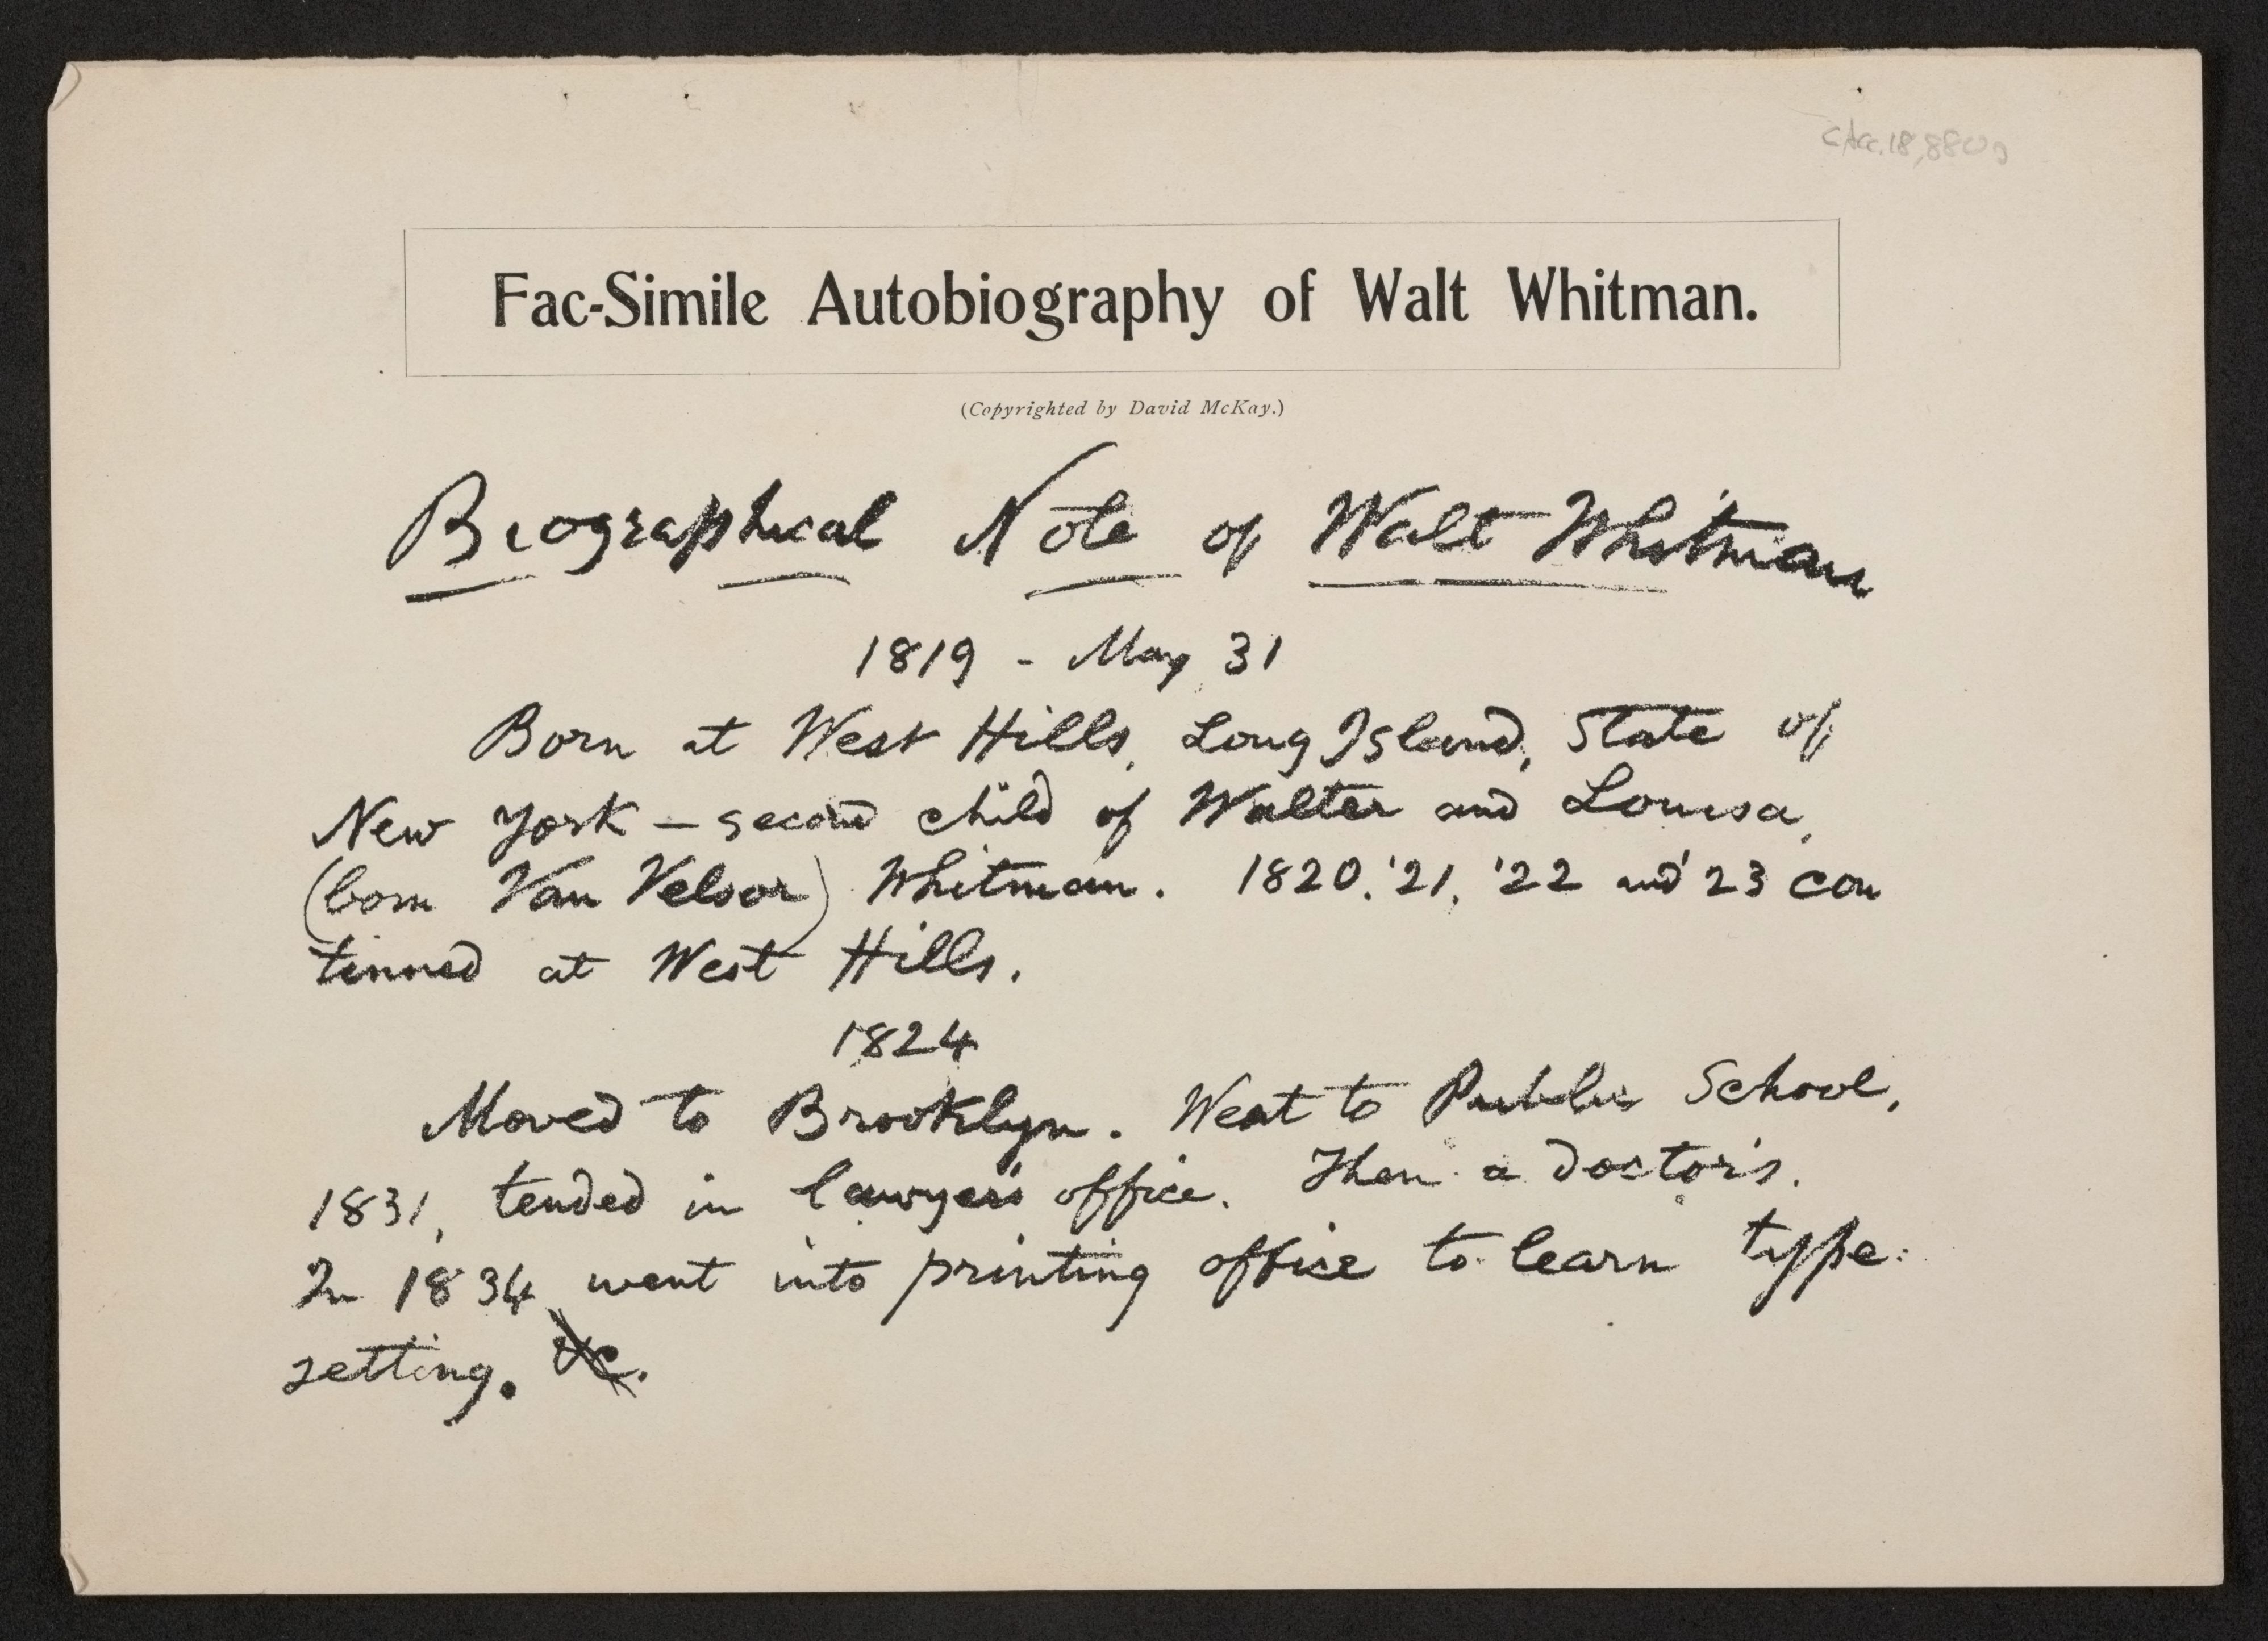 Fac-Simile Autobiography of Walt Whitman.
(Copyrighted by David McKay.)
Biographical Note of Walt Whitman
1819 - May 31
Born at West Hills, Long Island, State of
New York — second child of Walter and Louisa,
(born Van Velsor) Whitman. 1820, '21, '22 and '23 con
tinued at West Hills.
1824
Moved to Brooklyn. Went to Public School,
1831, tended in lawyer's office. Then a doctor's.
In 1834 went into printing office to learn type-
setting. &c.